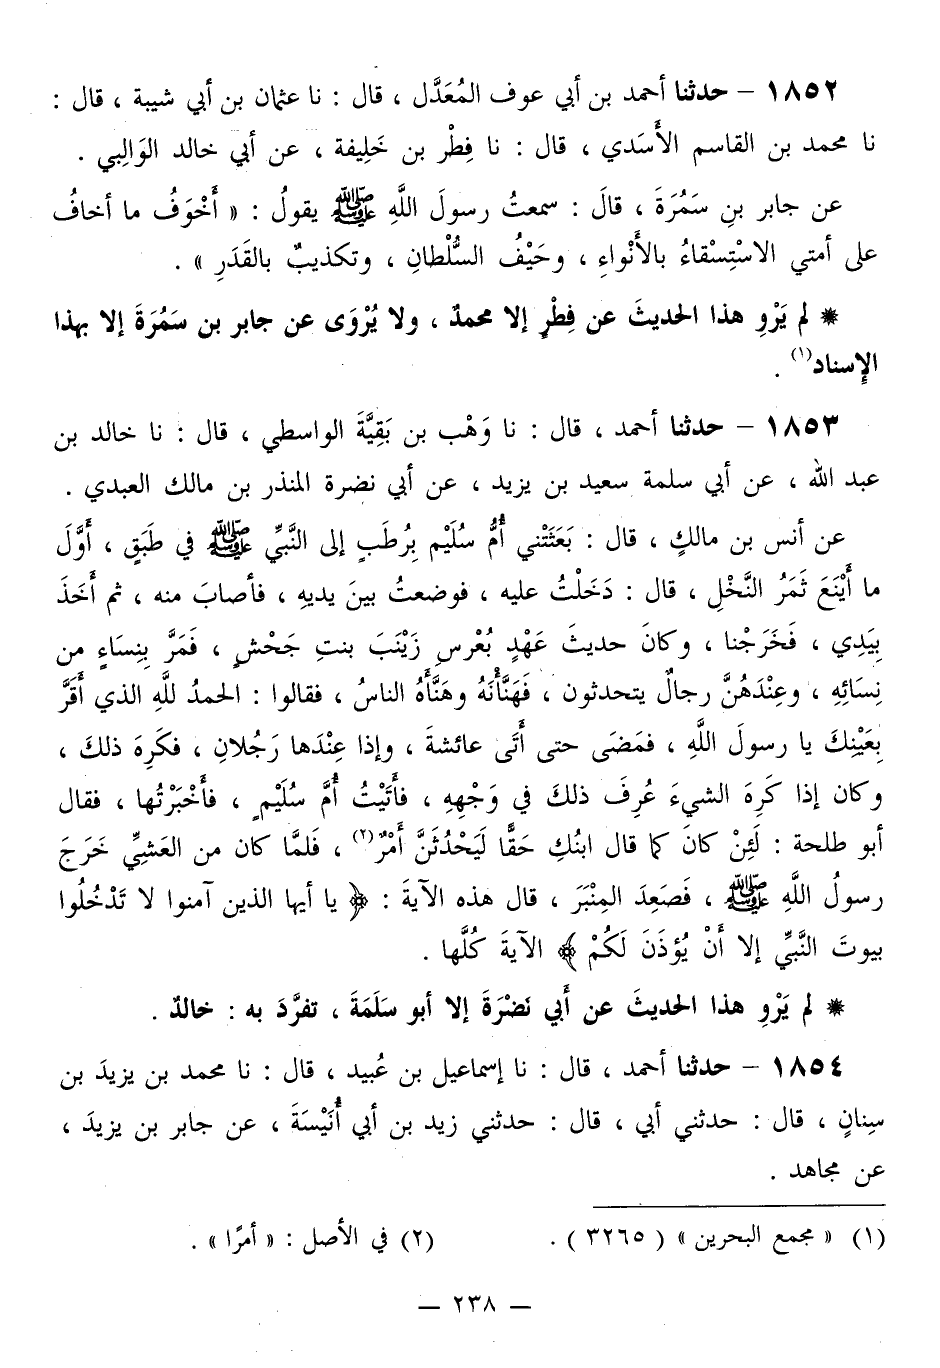 ١٨٥٢ – حدثنا أحمد بن أبي عوف المُعَدَّل ، قال : نا عثمان بن أبي شيبة ، قال :
نا محمد بن القاسم الأَسَدي ، قال : نا فِطْر بن خَلِيفة ، عن أبي خالد الوَالِبي .
عن جابر بنِ سَمُرَةَ ، قالَ : سمعتُ رسولَ اللَّهِ ﷺ يقولُ : « أَخْوَفُ ما أخافُ
على أمتي الاسْتِسْقاءُ بالأَنْواءِ ، وحَيْفُ السُّلْطانِ ، وتكذيبٌ بالقَدَرِ » .
* لم يَرْوِ هذا الحديثَ عن فِطْرٍ إلا محمدٌ ، ولا يُرْوَى عن جابر بن سَمُرَةَ إلا بهذا
الإِسناد(١) .
١٨٥٣ – حدثنا أحمد ، قال : نا وَهْب بن بَقِيَّةَ الواسطي ، قال : نا خالد بن
عبد الله ، عن أبي سلمة سعيد بن يزيد ، عن أبي نضرة المنذر بن مالك العبدي .
عن أنس بن مالكٍ ، قال : بَعَثَتْني أُمُّ سُلَيْم بِرُطَبٍ إلى النَّبيِّ ﷺ في طَبَقٍ ، أَوَّلَ
ما أَيْنَعَ ثَمَرُ النَّخْلِ ، قال : دَخَلْتُ عليه ، فوضعتُ بينَ يديهِ ، فأصابَ منه ، ثم أَخَذَ
بِيَدِي ، فَخَرَجْنا ، وكانَ حديثَ عَهْدٍ بُعْرسِ زَيْنَبَ بنتِ جَحْشٍ ، فَمَرَّ بِنِسَاءٍ من
نِسَائِهِ ، وعِنْدَهُنَّ رجالٌ يتحدثون ، فَهَنَّأْنَهُ وهَنَّأَهُ الناسُ ، فقالوا : الحمدُ للَّهِ الذي أَقَرَّ
بِعَيْنِكَ يا رسولَ اللَّهِ ، فمَضَى حتى أَتَى عائشةَ ، وإذا عِنْدَها رَجُلانِ ، فكَرِهَ ذلكَ ،
وكان إذا كَرِهَ الشيءَ عُرِفَ ذلكَ في وَجْهِهِ ، فأَتَيْتُ أُمَّ سُلَيْمٍ ، فأَخْبَرْتُها ، فقال
أبو طلحة : لَئِنْ كانَ كما قال ابنُكِ حَقًّا لَيَحْدُثَنَّ أَمْرٌ(٢) ، فَلمَّا كان من العَشيِّ خَرَجَ
رسولُ اللَّهِ ﷺ ، فَصَعِدَ المِنْبَرَ ، قال هذه الآيةَ : ﴿ يا أيها الذين آمنوا لا تَدْخُلُوا
بيوتَ النَّبيِّ إلا أَنْ يُؤذَنَ لَكُمْ ﴾ الآيةَ كُلَّها .
* لم يَرْوِ هذا الحديثَ عن أَبي نَضْرَةَ إلا أبو سَلَمَةَ ، تفرَّدَ به : خالدٌ .
١٨٥٤ – حدثنا أحمد ، قال : نا إسماعيل بن عُبيد ، قال : نا محمد بن يزيدَ بن
سِنانٍ ، قال : حدثني أبي ، قال : حدثني زيد بن أبي أُنَيْسَةَ ، عن جابر بن يزيدَ ،
عن مجاهد .
(١) « مجمع البحرين » ( ٣٢٦٥ ) . (٢) في الأصل : « أمرًا » .
– ٢٣٨ –